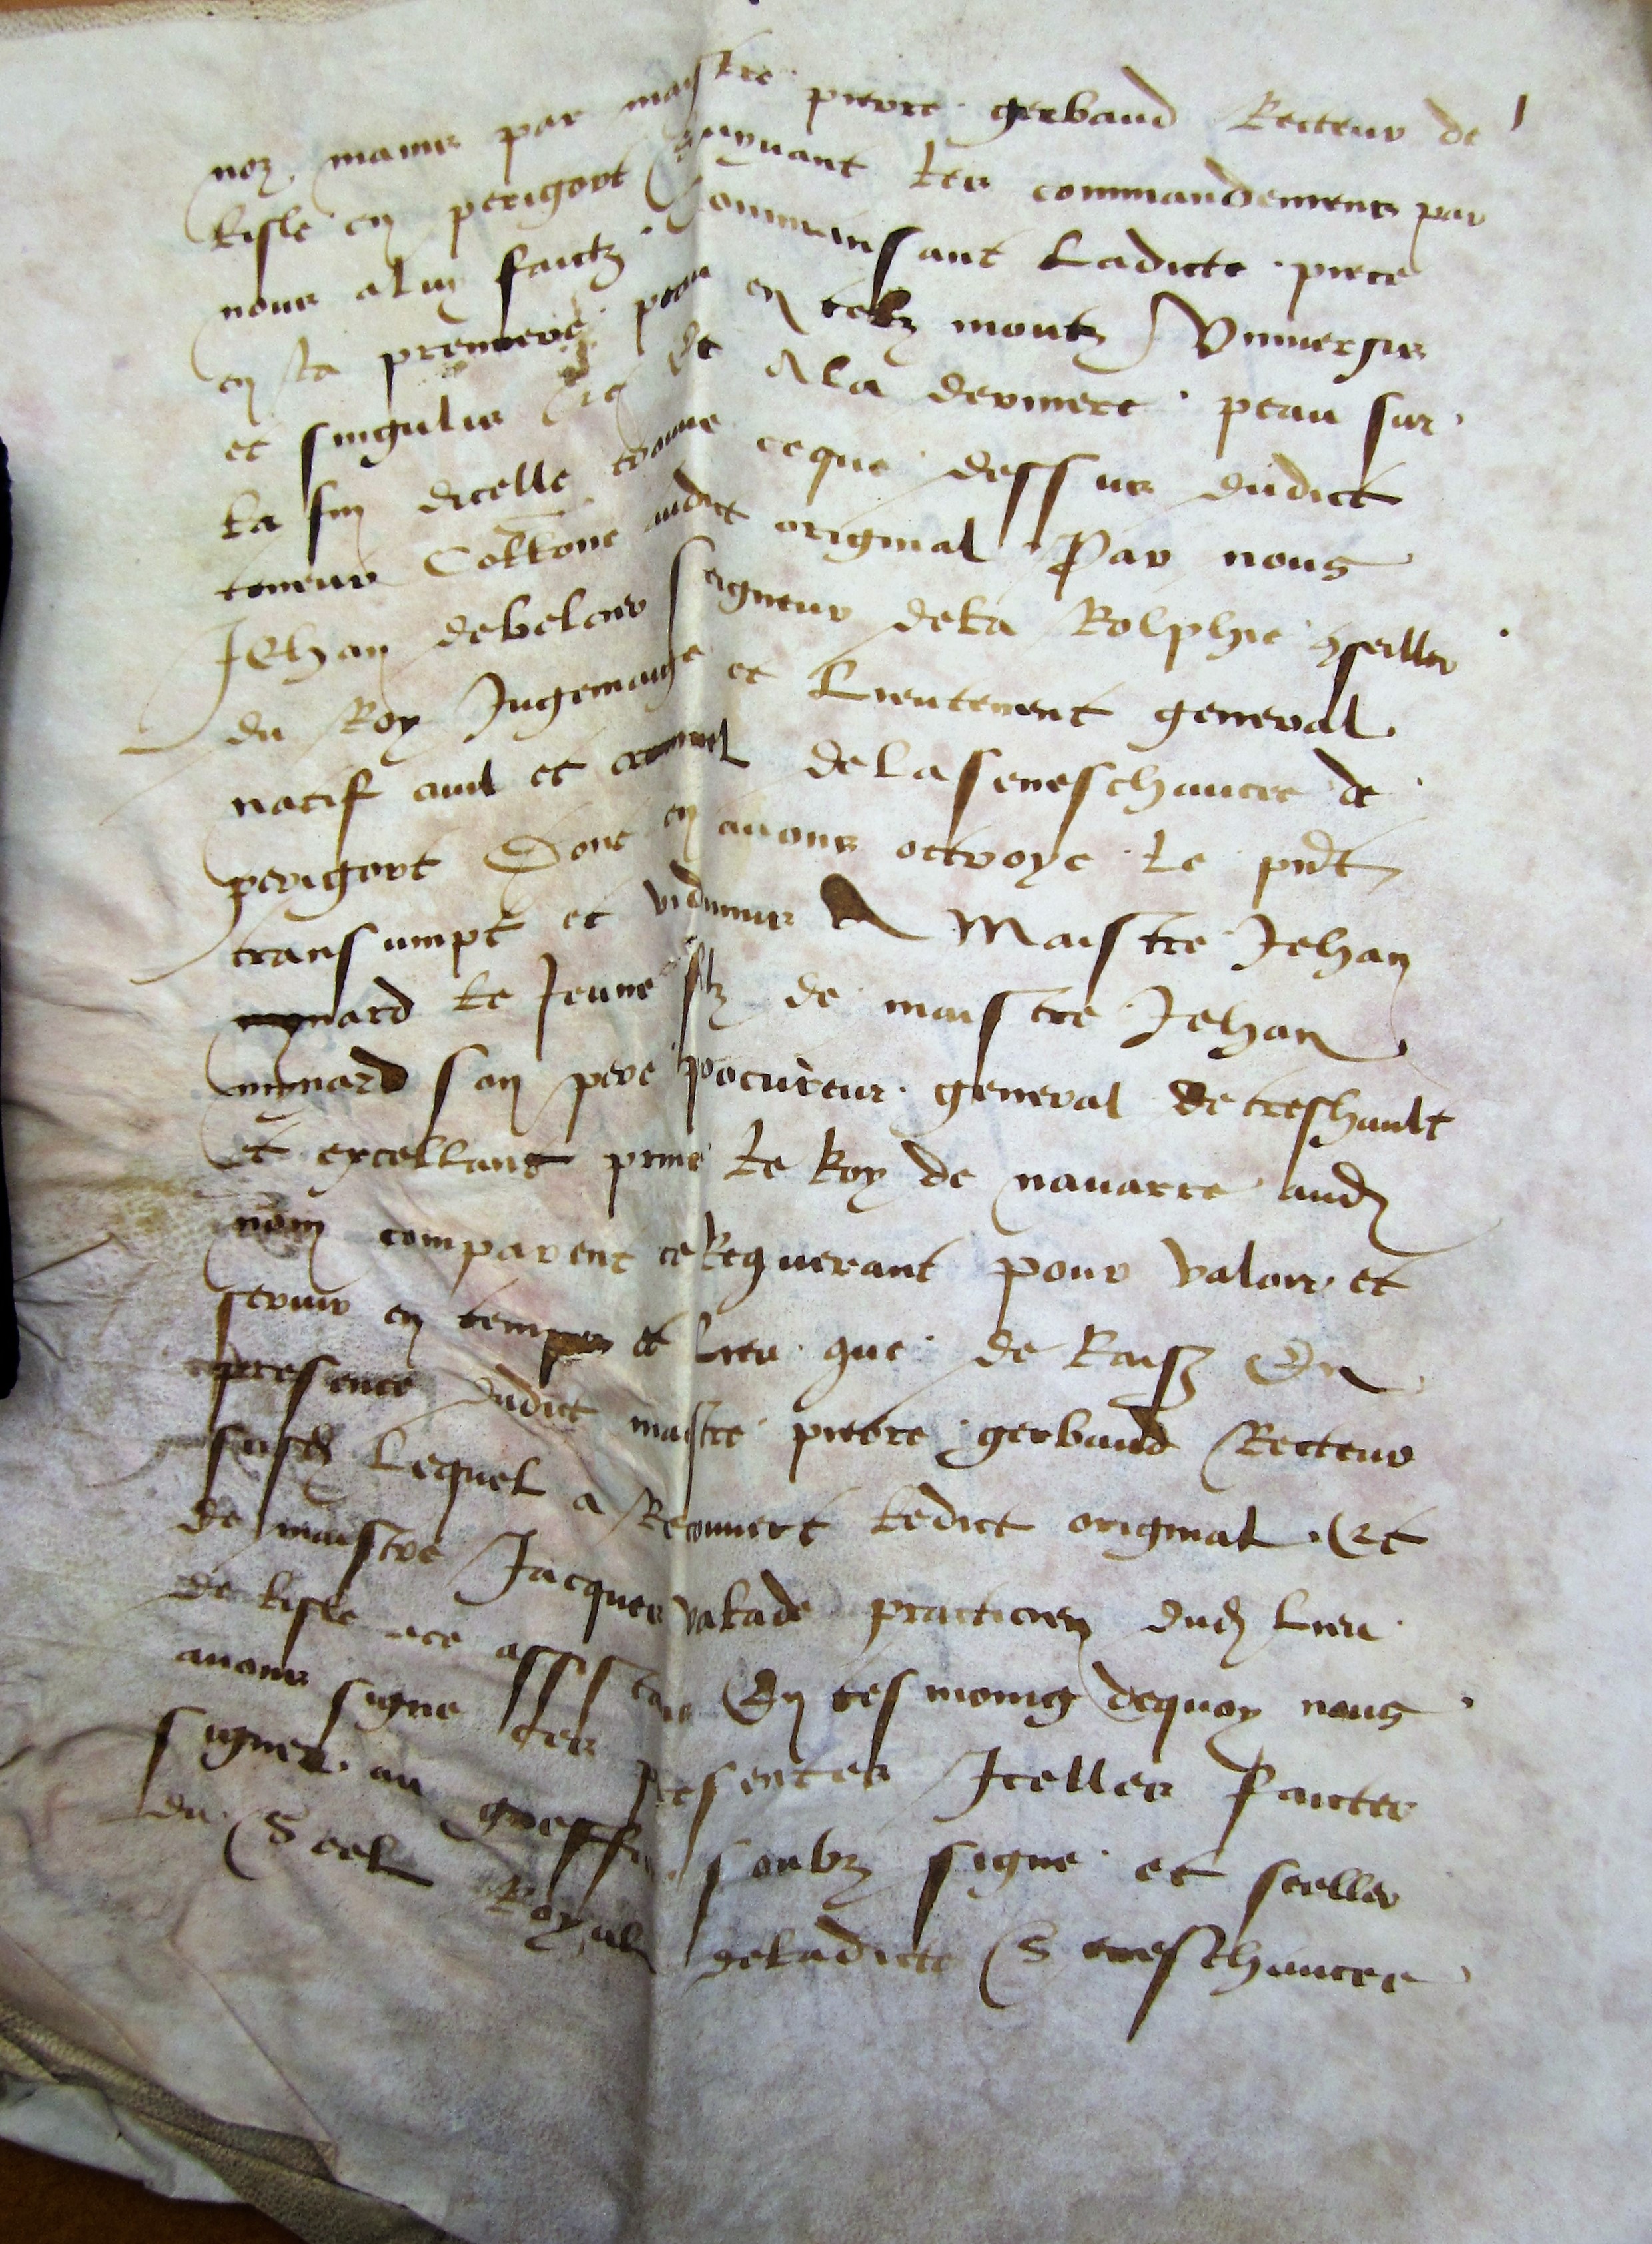 noz mains par maistre pierre gerbaud Recteur de
lisle en perigort Suyuant les commandemens par
nous a luy faictz Commansant Ladicte piece
en sa premiere peau en telz moutz Vniuersis
et singulis et A la derniere peau sur
la fin dicelle ce que dessus dudict
teneur Collonne audict original Par nous
Jehan debelcier seigneur dela Rolphie conseiller
du Roy Jugemaige et Lieutenent general
natif ciuil et criminel dela seneschaucee de
perigort Dont en auons octroye le pnt
transumpt et vidimus A Maistre Jehan
mynard le Jeune filz de maistre Jehan
mynard son pere procureur general de treshault
et excellant prince le Roy de nauarre aud
nom comparent ce Requerant pour valoir et
seruir en temps et Lieu que de Raison En
presence dudict maistre pierre gerbaud Recteur
susd Lequel a Recouuert ledict original Et
de maistre Jacques valade practicien dud Lieu
de lisle ace assistans En tesmoing dequoy nous
auons signe ces presentes Icelles faictes
signer au greffier soubz signe et sceller
du Seel Royal deladicte Seneschaucee